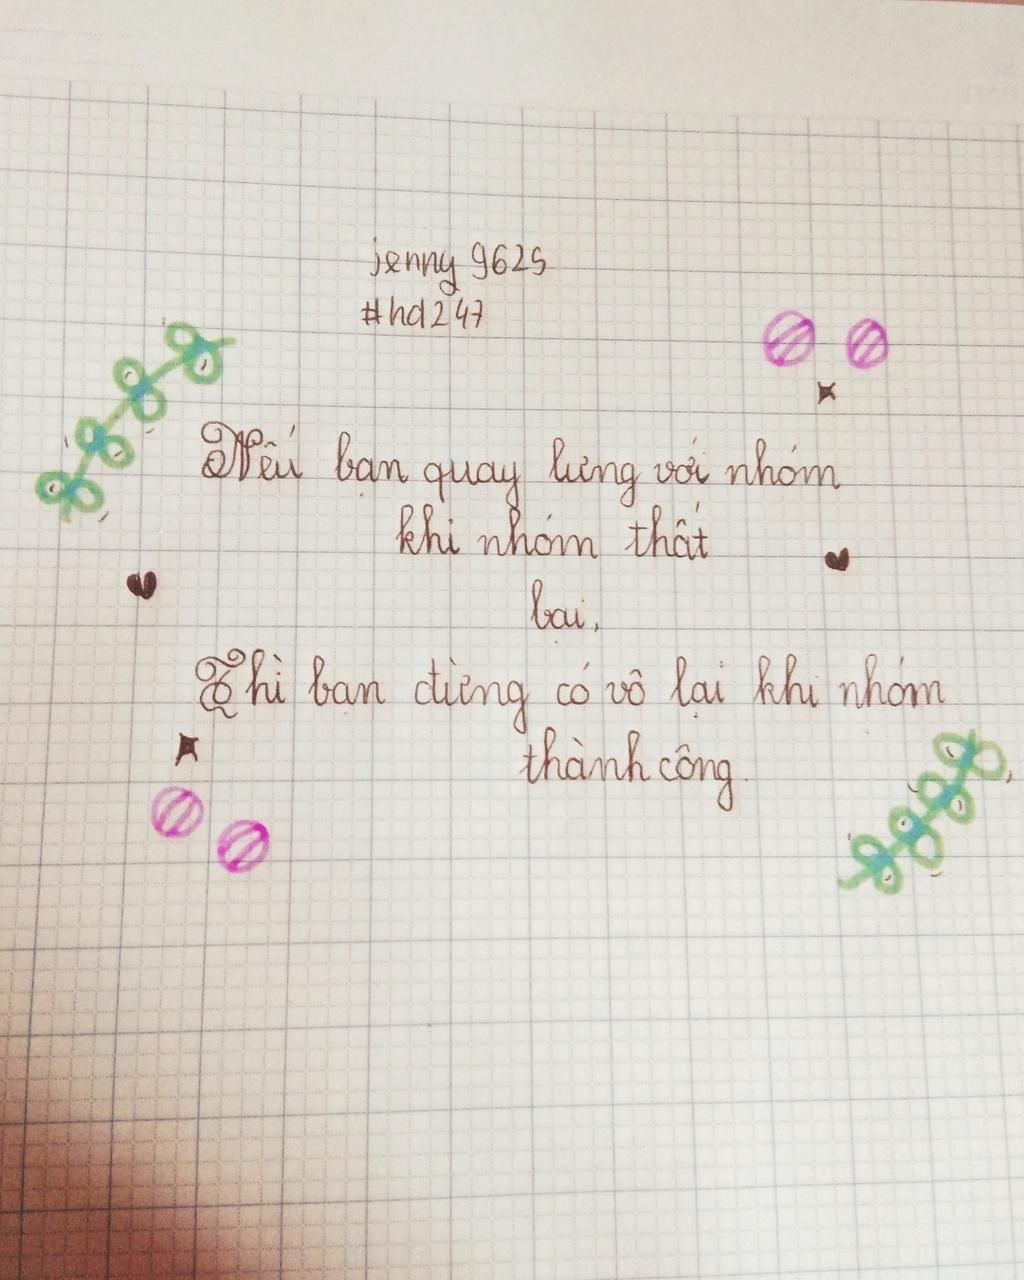 jenny 9625
#hd247
Nếu bạn quay lưng với nhóm
khi nhóm thất
bại,
Thì bạn đừng có vô lại khi nhóm
thành công.